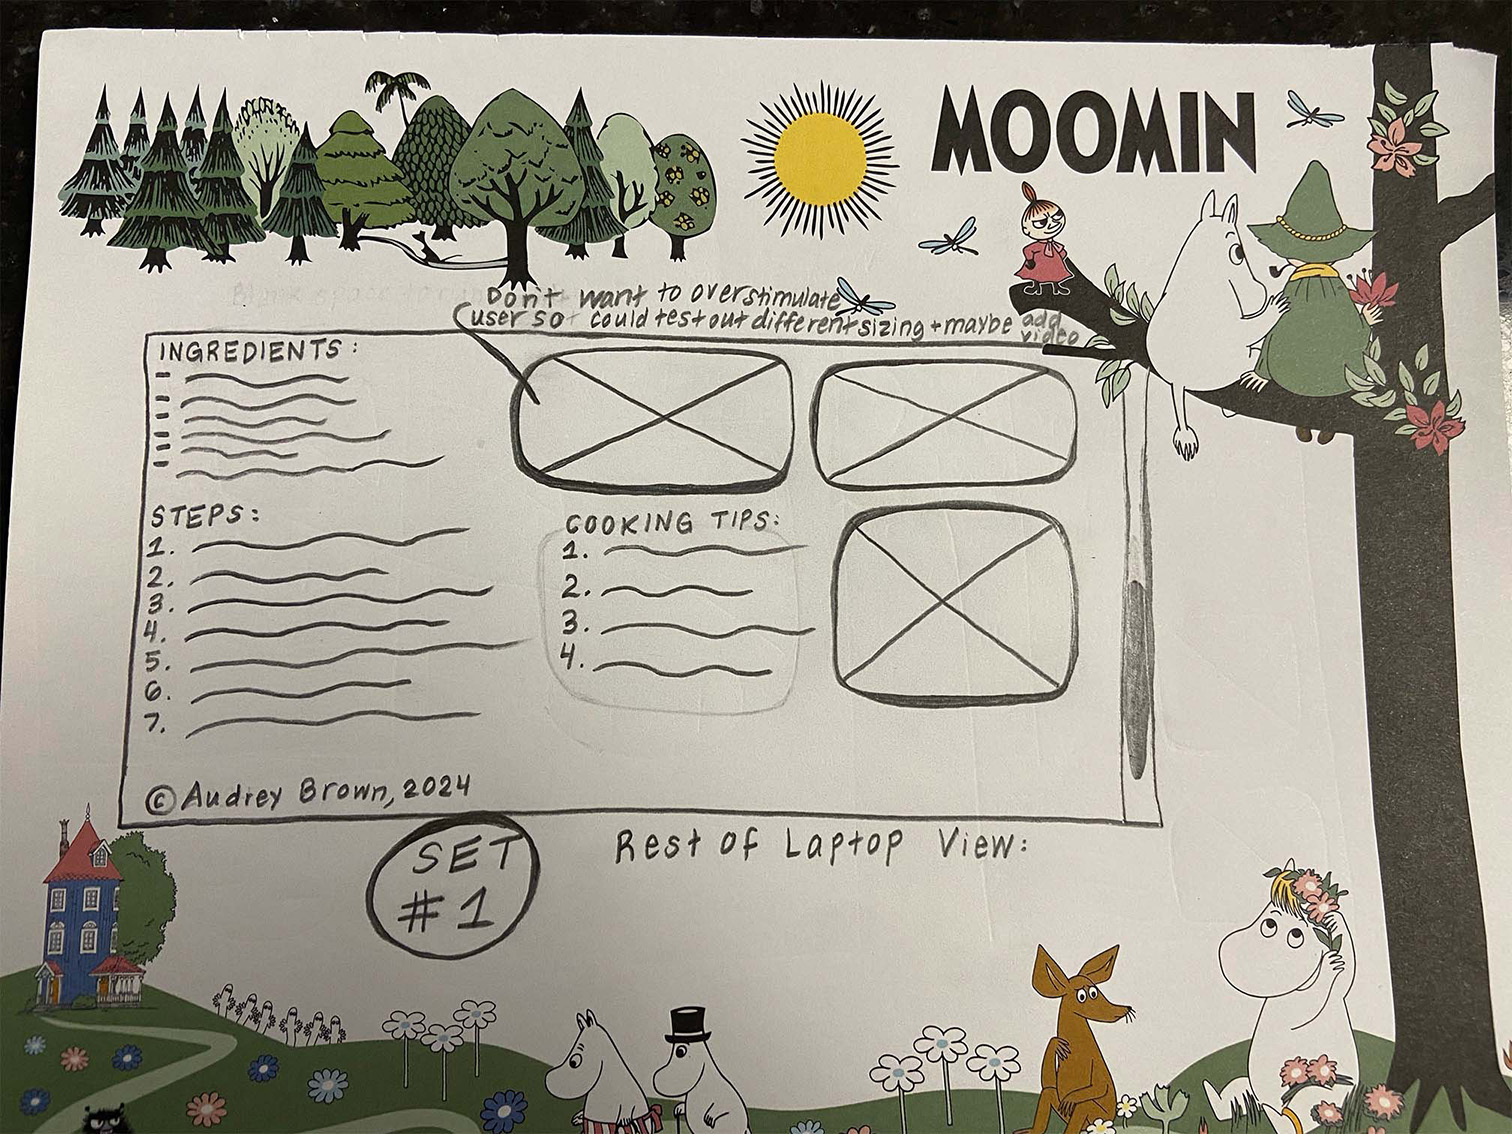 MOOMIN
Don't want to overstimulate
user so could test out different sizing + maybe add
video
INGREDIENTS:
STEPS:
1.
2.
3.
4.
5.
6.
7.
COOKING TIPS:
1.
2.
3.
4.
© Audrey Brown, 2024
SET
#1
Rest of Laptop View: